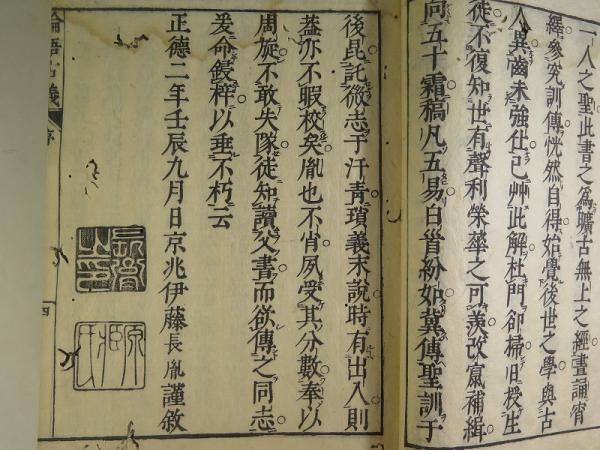 一人之聖此書之爲曠古無上之經晝誦宵
繹參究訓傳恍然自得始覺後世之學與古
人異齒未強仕已艸此解杜門卻掃日授生
徒不復知世有聲利榮華之可羨改竄補緝
向五十霜稿凡五易白首紛如冀傳聖訓于
後昆託微志于汗青瑣義末說時有出入則
葢亦不暇校矣胤也不肖夙受其分數奉以
周旋不敢失隊徒知讀父書而欲傳之同志
爰命鋟梓以垂不朽云
正德二年壬辰九月日京兆伊藤長胤謹敘
論語古義
序
四
長胤
之印
原
氏